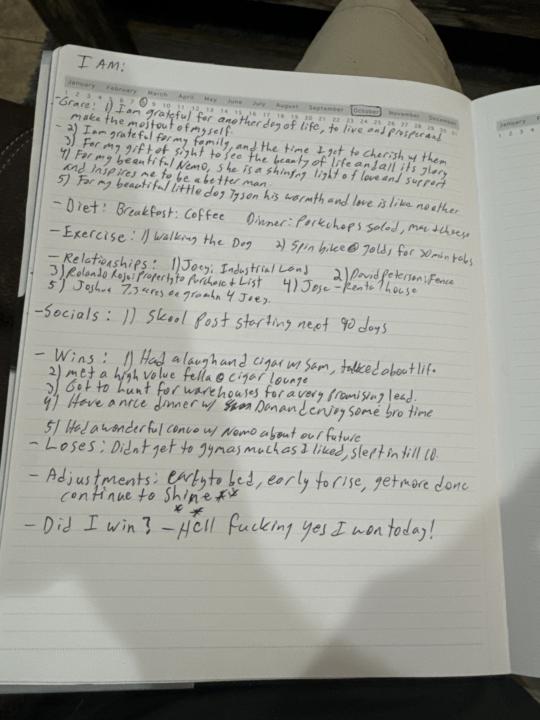 I AM:
January February March April May June July August September October November December
1 2 3 4 5 6 7 8 9 10 11 12 13 14 15 16 17 18 19 20 21 22 23 24 25 26 27 28 29 30 31
- Grace: 1) I am grateful for another day of life, to live and prosper and
make the most out of myself.
- 2) I am grateful for my family, and the time I get to cherish w/ them
3) For my gift of sight to see the beauty of life and all its glory
4) For my beautiful Nemo, she is a shining light of love and support
and inspires me to be a better man.
5) For my beautiful little dog Tyson his warmth and love is like no other
- Diet: Breakfast: Coffee Dinner: Porkchops salad, mac & cheese
- Exercise: 1) Walking the Dog 2) Spin bike @ Golds for 30min + abs
- Relationships: 1) Joey: Industrial Land 2) David Peterson: Fence
3) Rolando Rojo: Property to Purchase & List 4) Jose - Rental house
5) Joshua 7.3 acres on 4 Joey.
- Socials: 1) Skool Post starting next 90 days
- Wins: 1) Had a laugh and cigar w/ Sam, talked about life
2) met a high value fella @ cigar lounge
3) Got to hunt for warehouses for a very promising lead.
4) Have a nice dinner w/ Dan and enjoy some bro time
5) Had a wonderful convo w/ Nemo about our future
- Loses: Didnt get to gym as much as I liked, slept in till 10.
- Adjustments: early to bed, early to rise, get more done
continue to shine **
* *
- Did I win? - Hell fucking yes I won today!
January
1 2 3 4